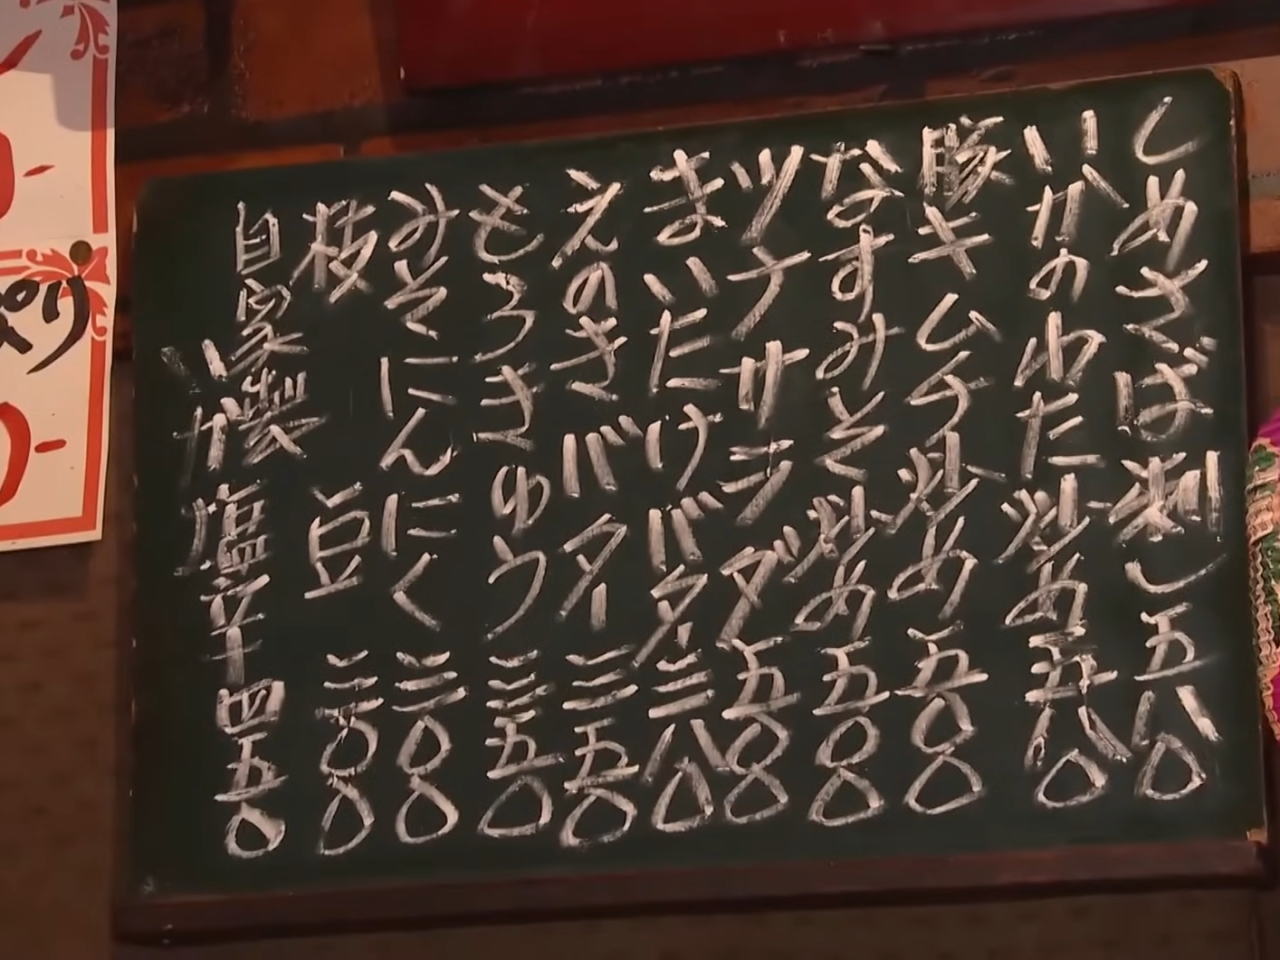 しめさば刺し 五八〇
いかのわた炒め 五八〇
豚キムチ炒め 五〇〇
なすみそ炒め 五〇〇
ツナサラダ 五〇〇
まいたけバター 三八〇
えのきバター 三五〇
もろきゅう 三五〇
みそにんにく 三〇〇
枝豆 三〇〇
自家製いか塩辛 四五〇